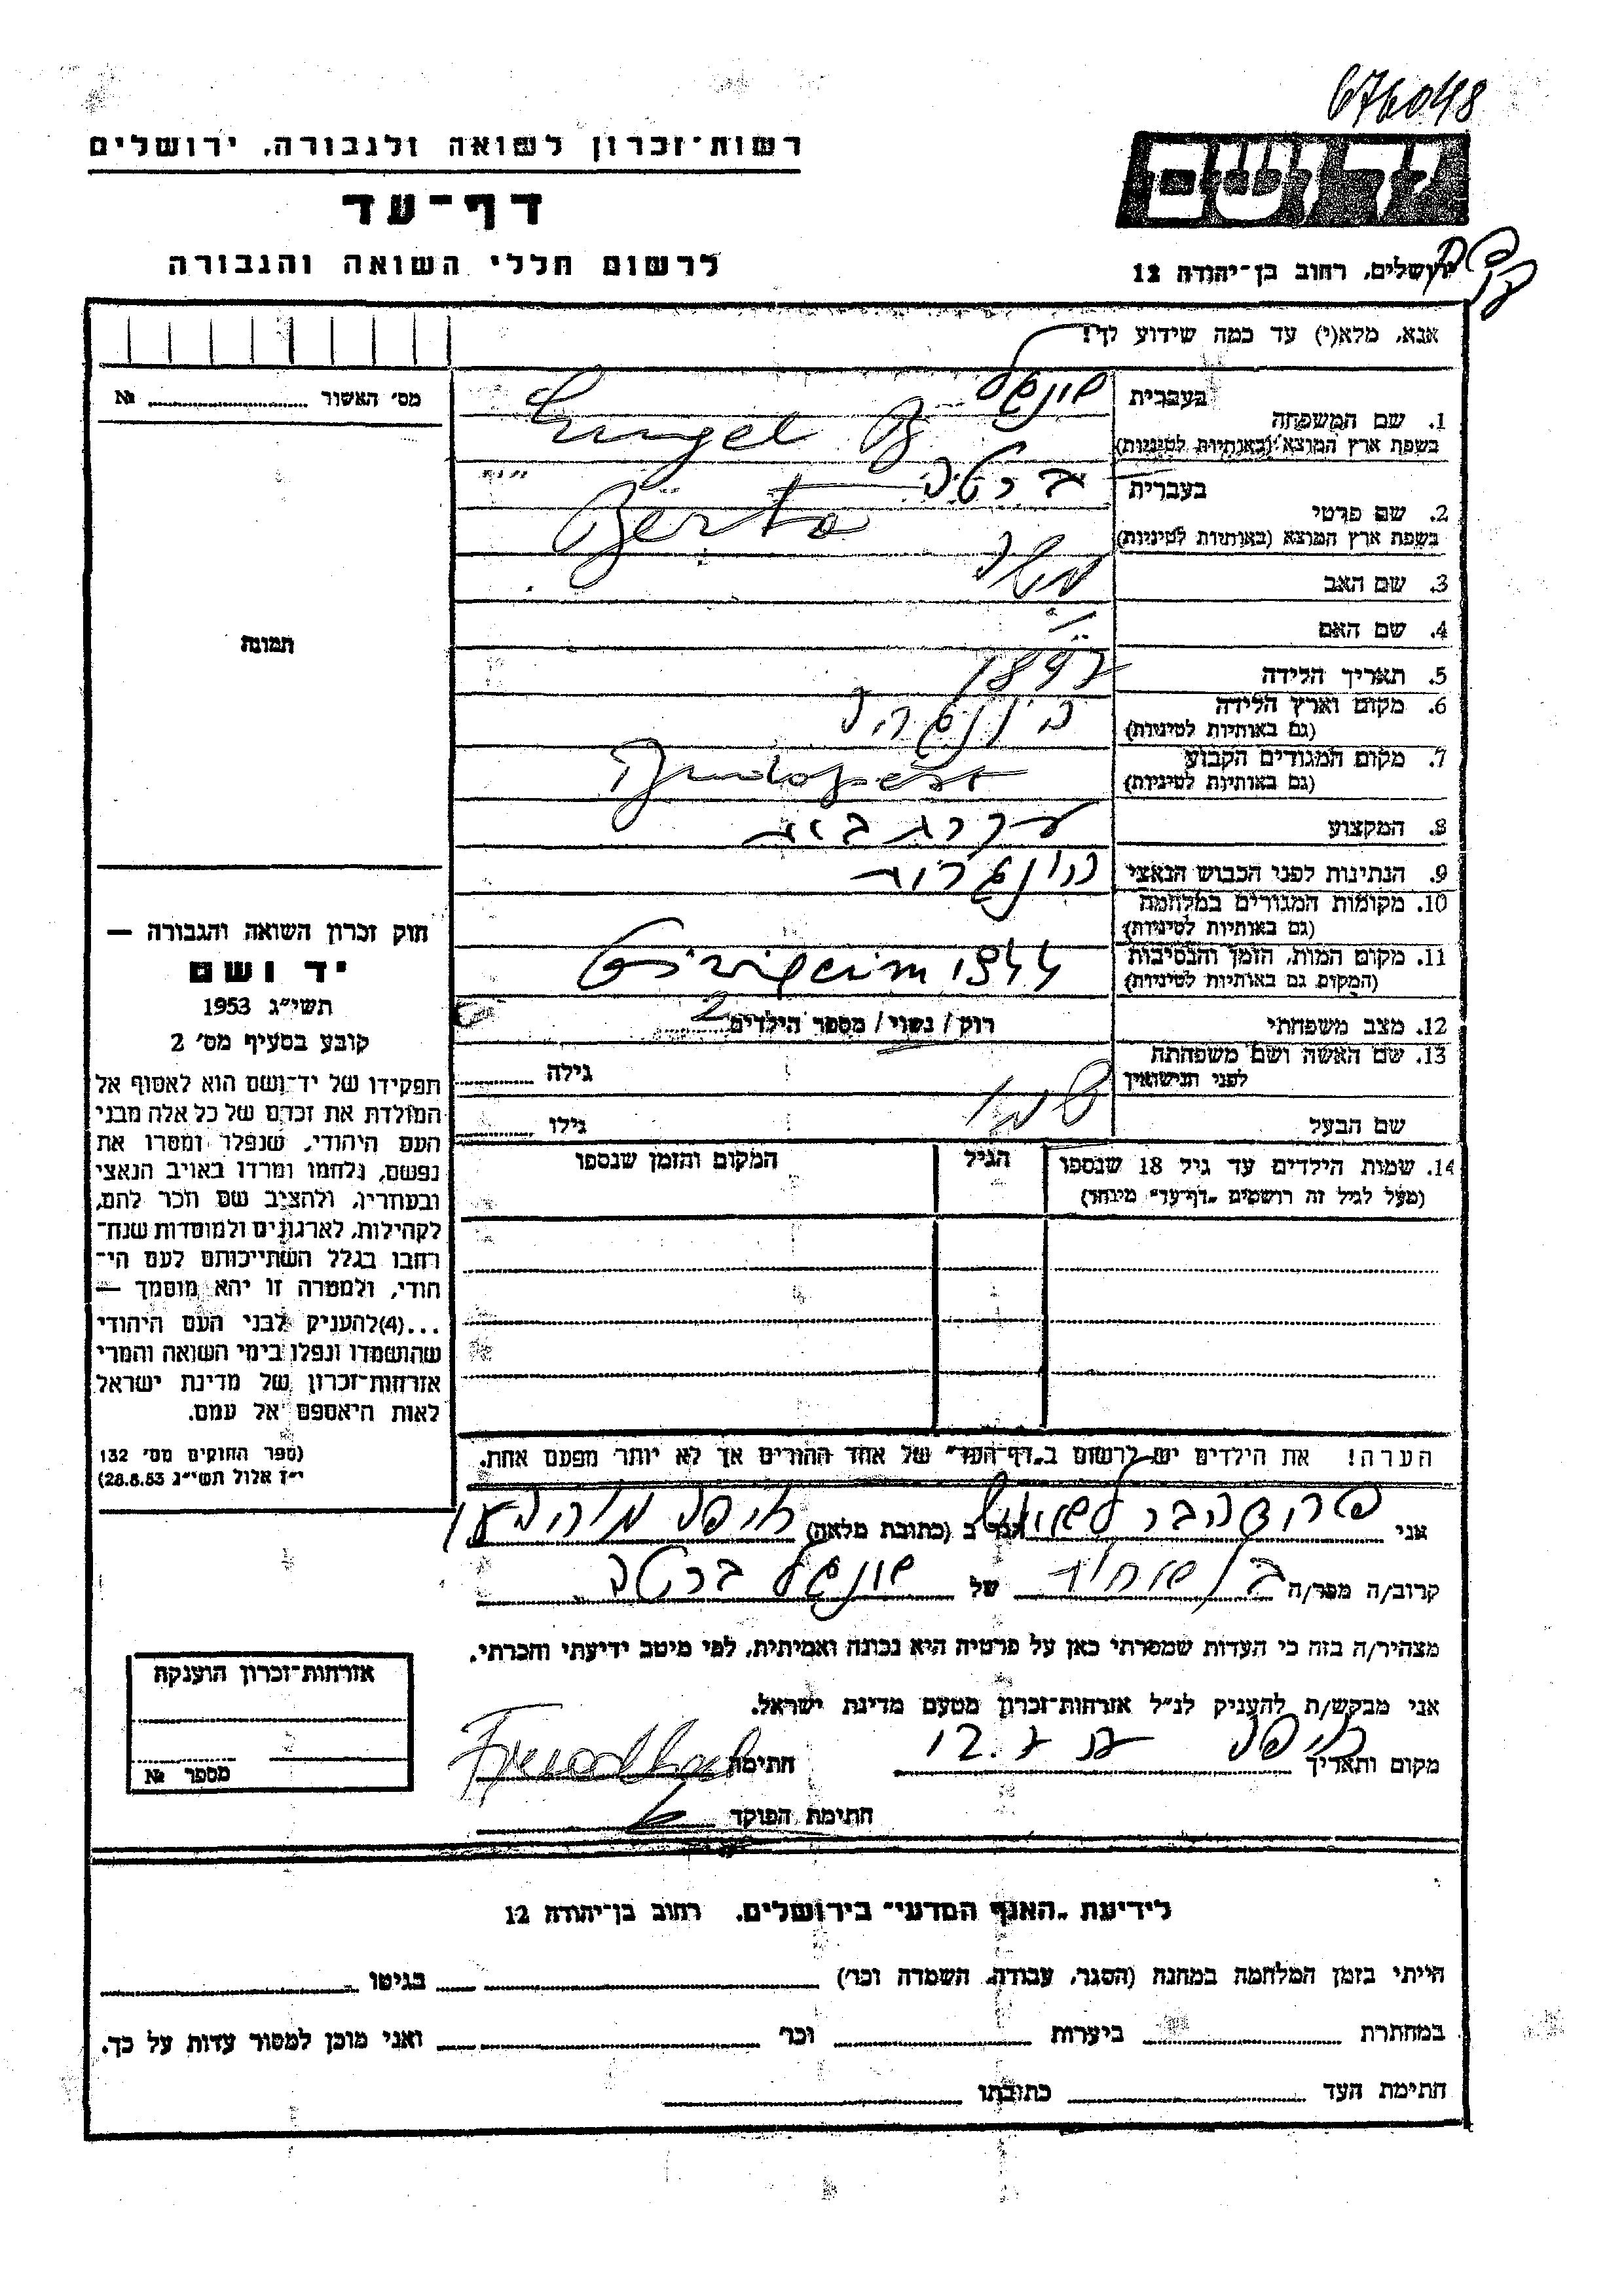 676048
רשות-זכרון לשואה ולגבורה, ירושלים
דף-עד
לרשום חללי השואה והגבורה
ירושלים, רחוב בן-יהודה 12
אנא, מלא(י) עד כמה שידוע לך!
מס' האשור № 
1. שם המשפחה
בעברית
בשפת ארץ המוצא (באותיות לטיניות)
2. שם פרטי
בעברית ברטה
בשפת ארץ המוצא (באותיות לטיניות) Berta
3. שם האב
4. שם האם
5. תאריך הלידה 1892
6. מקום וארץ הלידה הונגריה
(גם באותיות לטיניות)
7. מקום המגורים הקבוע Budapest
(גם באותיות לטיניות)
8. המקצוע עקרת בית
9. הנתינות לפני הכבוש הנאצי הונגרית
10. מקומות המגורים במלחמה
(גם באותיות לטיניות)
11. מקום המות, הזמן והנסיבות 1944
(המקום גם באותיות לטיניות)
12. מצב משפחתי רוק/ נשוי/ מספר הילדים 2
13. שם האשה ושם משפחתה
לפני הנישואין
גילה
שם הבעל
גילו
14. שמות הילדים עד גיל 18 שנספו
(מעל לגיל זה רושמים "דף-עד" מיוחד)
הגיל
המקום והזמן שנספו
הערה! את הילדים יש לרשום ב"דף-העד" של אחד ההורים אך לא יותר מפעם אחת.
תמונה
חוק זכרון השואה והגבורה —
יד ושם
תשי"ג 1953
קובע בסעיף מס' 2
תפקידו של יד-ושם הוא לאסוף אל
המולדת את זכרם של כל אלה מבני
העם היהודי, שנפלו ומסרו את
נפשם, נלחמו ומרדו באויב הנאצי
ובעוזריו, ולהציב שם וזכר להם,
לקהילות, לארגונים ולמוסדות שנח-
רבו בגלל השתייכותם לעם הי-
הודי, ולמטרה זו יהא מוסמך —
...(4)להעניק לבני העם היהודי
שהושמדו ונפלו בימי השואה והמרי
אזרחות-זכרון של מדינת ישראל
לאות היאספם אל עמם.
(ספר החוקים מס' 132
י"ז אלול תשי"ג 28.8.53)
אני הגר ב (כתובת מלאה) חיפה
קרוב/ה מכר/ה של ברטה
מצהיר/ה בזה כי העדות שמסרתי כאן על פרטיה היא נכונה ואמיתית, לפי מיטב ידיעתי והכרתי.
אני מבקש/ת להעניק לנ"ל אזרחות-זכרון מטעם מדינת ישראל.
מקום ותאריך חיפה חתימה
חתימת הפוקד
אזרחות-זכרון הוענקה
מספר №
לידיעת "האגף המדעי" בירושלים, רחוב בן-יהודה 12
הייתי בזמן המלחמה במחנה (הסגר, עבודה, השמדה וכו') בגיטו
במחתרת ביערות וכו' ואני מוכן למסור עדות על כך.
חתימת העד כתובתו